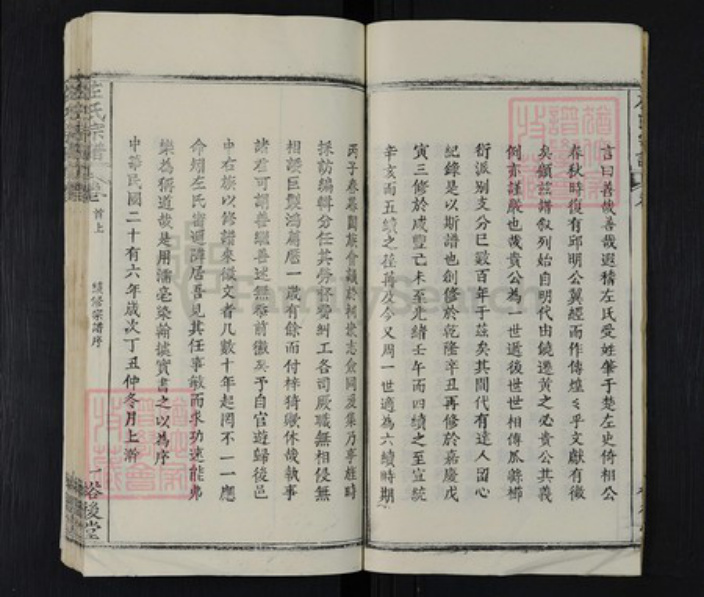 言曰善哉善哉遐稽左氏受姓肇于楚左史倚相公
春秋時復有邱明公翼經而作傳煌々乎文獻有徵
矣顧茲譜叙列始自明代由饒遷黃之必貴公其義
例亦謹嚴也哉貴公為一世遞後世世相傳瓜緜
衍派別支分已數百年于茲矣其間代有達人留心
紀錄是以斯譜也創修於乾隆辛丑再修於嘉慶戊
寅三修於咸豐己未至光緒壬午而四續之至宣統
辛亥而五續之荏苒及今又周一世適為六續時期
丙子春爰開族會議於祠衆志僉同爰集乃事經時
採訪編輯分任其勞督務糾工各司厥職無相侵無
相讓巨製鴻篇歷一歲有餘而付梓猗歟休哉執事
諸君可謂善繼善述無忝前徽矣予自官遊歸後邑
中右族以修譜來徵文者几數十年起罔不一一應
命矧左氏甯廻隣居吾見其任事敏而求功速能弗
樂為稱道哉是用濡毫染翰摭實書之以為序
中華民國二十有六年歲次丁丑仲冬月上澣
左氏宗譜
卷
首上
續修宗譜序
一
裕後堂
FamilySearch